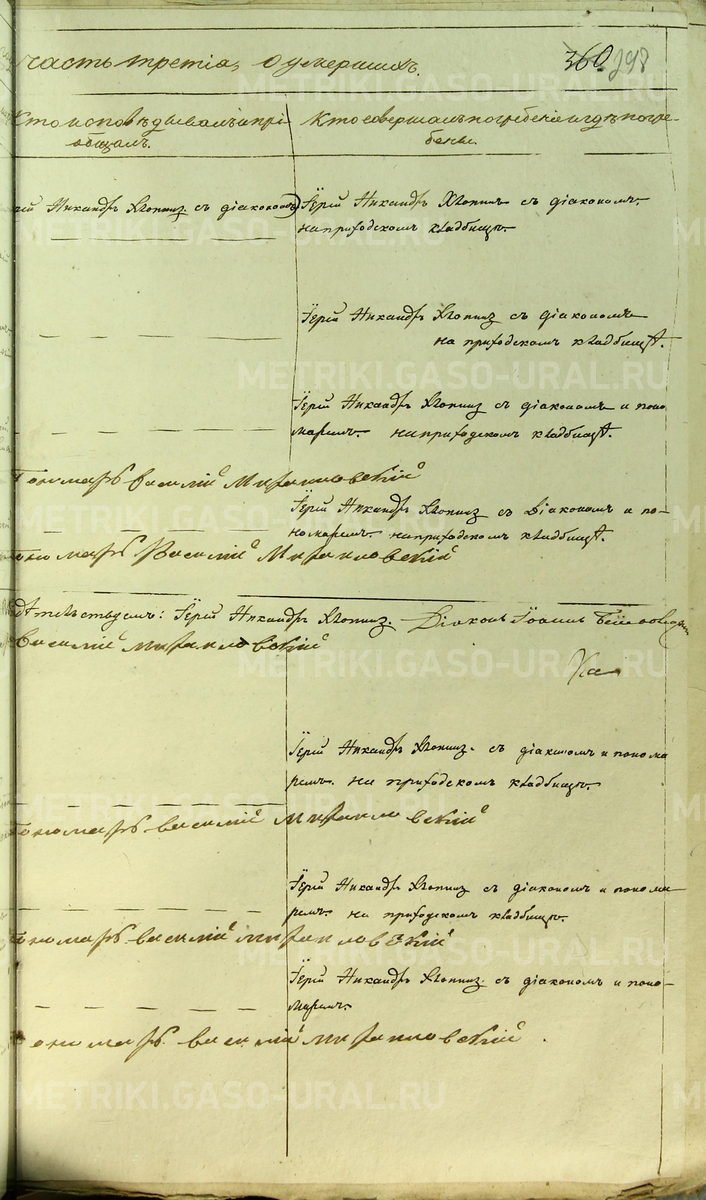 часть третія, о умершихъ. 360. 298
Кто исповѣдывалъ и прі-
общалъ.
Кто совершалъ погребеніе и гдѣ погре-
бены.
рей Никандръ Хлопинъ. съ діакономъ
Іерей Никандръ Хлопинъ съ діакономъ.
на приходскомъ кладбищѣ.
Іерей Никандръ Хлопинъ съ діакономъ
на приходскомъ кладбищѣ.
Іерей Никандръ Хлопинъ съ діакономъ и поно
маремъ. на приходскомъ кладбищѣ.
Пономарь Василій
Іерей Никандръ Хлопинъ съ Діакономъ и по-
номаремъ. на приходскомъ кладбищѣ.
Пономарь Василій
дѣтельствуемъ: Іерей Никандръ Хлопинъ. Діаконъ Іоаннъ
Василій
Іерей Никандръ Хлопинъ. съ діакономъ и понома
ремъ. на приходскомъ кладбищѣ.
Пономарь Василій
Іерей Никандръ Хлопинъ съ діакономъ и понома
ремъ. на приходскомъ кладбищѣ.
Пономарь Василій
Іерей Никандръ Хлопинъ. съ діакономъ и поно-
маремъ.
Пономарь Василій
METRIKI.GASO-URAL.RU